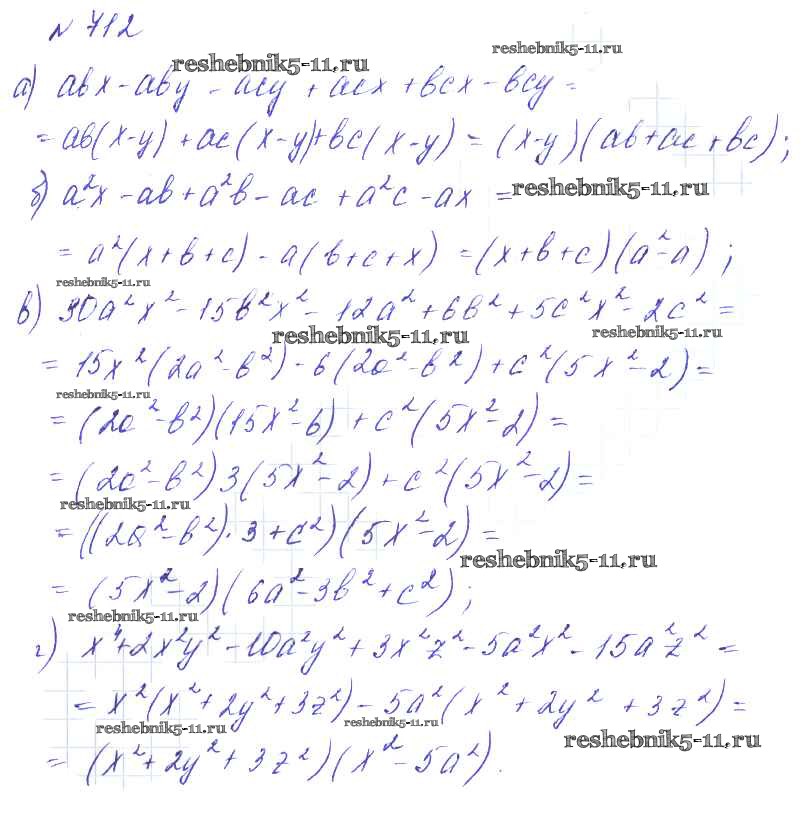 № 712
reshebnik5-11.ru reshebnik5-11.ru
а) abx - aby - acy + acx + bcx - bcy =
= ab(x-y) + ac(x-y) + bc(x-y) = (x-y)(ab+ac+bc);
б) a²x - ab + a²b - ac + a²c - ax = reshebnik5-11.ru
= a²(x+b+c) - a(b+c+x) = (x+b+c)(a²-a);
reshebnik5-11.ru
в) 30a²x² - 15b²x² - 12a² + 6b² + 5c²x² - 2c² =
reshebnik5-11.ru reshebnik5-11.ru
= 15x²(2a²-b²) - 6(2a²-b²) + c²(5x²-2) =
reshebnik5-11.ru
= (2a²-b²)(15x²-6) + c²(5x²-2) =
= (2a²-b²)3(5x²-2) + c²(5x²-2) =
reshebnik5-11.ru
= ((2a²-b²)·3+c²)(5x²-2) =
reshebnik5-11.ru
= (5x²-2)(6a²-3b²+c²);
reshebnik5-11.ru
г) x⁴+2x²y² - 10a²y² + 3x²z² - 5a²x² - 15a²z² =
= x²(x²+2y²+3z²) - 5a²(x²+2y²+3z²) =
reshebnik5-11.ru reshebnik5-11.ru reshebnik5-11.ru
= (x²+2y²+3z²)(x²-5a²).